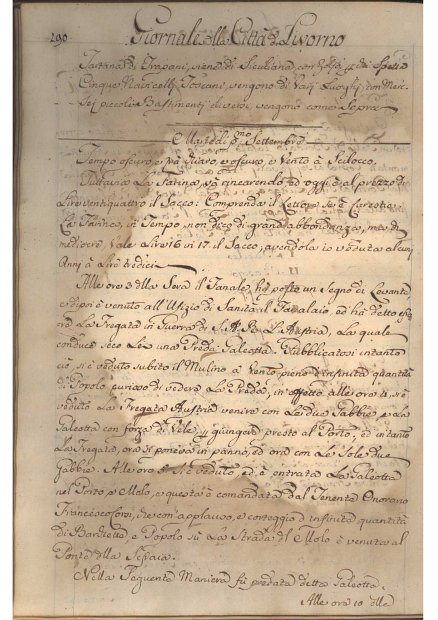 290. Giornale della Città di Livorno
Tartana di Trapani, viene di Siculiana, con
Cinque Navicelli Toscani, vengono di Varj Luoghi, con Merc.
Sei piccoli Bastimenti diversi, vengono come Sopra
Martedì p.mo Settembre
Tempo oscuro, e poi chiaro, e oscuro, e Vento à Scilocco.
Tuttavia La Farina, và rincarendo ed oggi è al prezzo di
Lire ventiquattro il Sacco: Comprenda il Lettore se v'è Carestia.
La Farina, in Tempo non dico di grand'abbondanza, ma di
mediocre, vale Lire 16 in 17. il Sacco, avendola io veduta alcuni
Anni à Lire tredici
Alle ore 3 della Sera il Fanale, hà posto un Segno di Levante
e dipoi è venuto all'Ufizio di Sanità il Fanalaio, ed hà detto
La Fregata in Guerra di S.A.R. L'Austria. La quale
conduce seco Lei una Preda Galeotta. Pubblicatosi intanto
ciò, si è veduto subito il Mulino à Vento pieno d'infinita quantità
di Popolo curioso di vedere La Preda; in effetto alle ore 4. si è
veduto La Fregata Austria venire con Le due Gabbie, e La
Galeotta con forza di Vele p. giungere presto al Porto; ed intanto
La Fregata, ora si poneva in panno, ed ora con Le Sole due
Gabbie. Alle ore si è veduto, ed è entrata La Galeotta
nel Porto, e Molo, e questa è comandata dal Tenente Onorario
Franceschi, che con applauso, e corteggio d'infinita quantità
di Barchette, e Popolo sù La Strada del Molo è venuta al
Ponte della Sassaia.
Nella Seguente Maniera fù predata detta Galeotta.
Alle ore 10 della